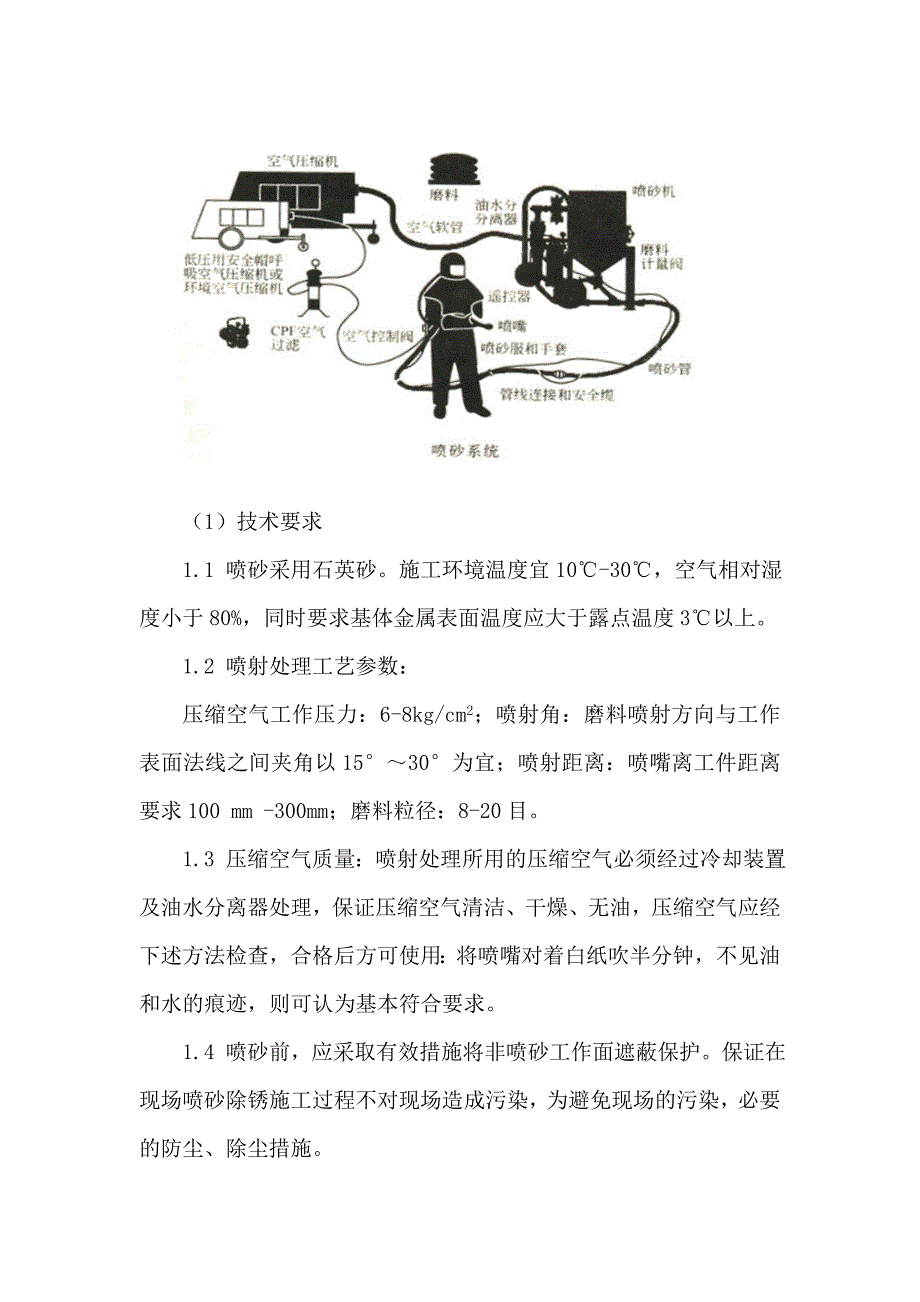 空气压缩机
磨料
喷砂机
油水分
分离器
空气软管
磨料
计量阀
低压用安全帽呼
吸空气压缩机或
环境空气压缩机
遥控器
CPF空气
过滤
空气控制阀
喷嘴
喷砂服和手套
喷砂管
管线连接和安全缆
喷砂系统
（1）技术要求
1.1 喷砂采用石英砂。施工环境温度宜10℃-30℃，空气相对湿
度小于80%，同时要求基体金属表面温度应大于露点温度3℃以上。
1.2 喷射处理工艺参数：
压缩空气工作压力：6-8kg/cm²；喷射角：磨料喷射方向与工作
表面法线之间夹角以15°～30°为宜；喷射距离：喷嘴离工件距离
要求100 mm -300mm；磨料粒径：8-20目。
1.3 压缩空气质量：喷射处理所用的压缩空气必须经过冷却装置
及油水分离器处理，保证压缩空气清洁、干燥、无油，压缩空气应经
下述方法检查，合格后方可使用：将喷嘴对着白纸吹半分钟，不见油
和水的痕迹，则可认为基本符合要求。
1.4 喷砂前，应采取有效措施将非喷砂工作面遮蔽保护。保证在
现场喷砂除锈施工过程不对现场造成污染，为避免现场的污染，必要
的防尘、除尘措施。